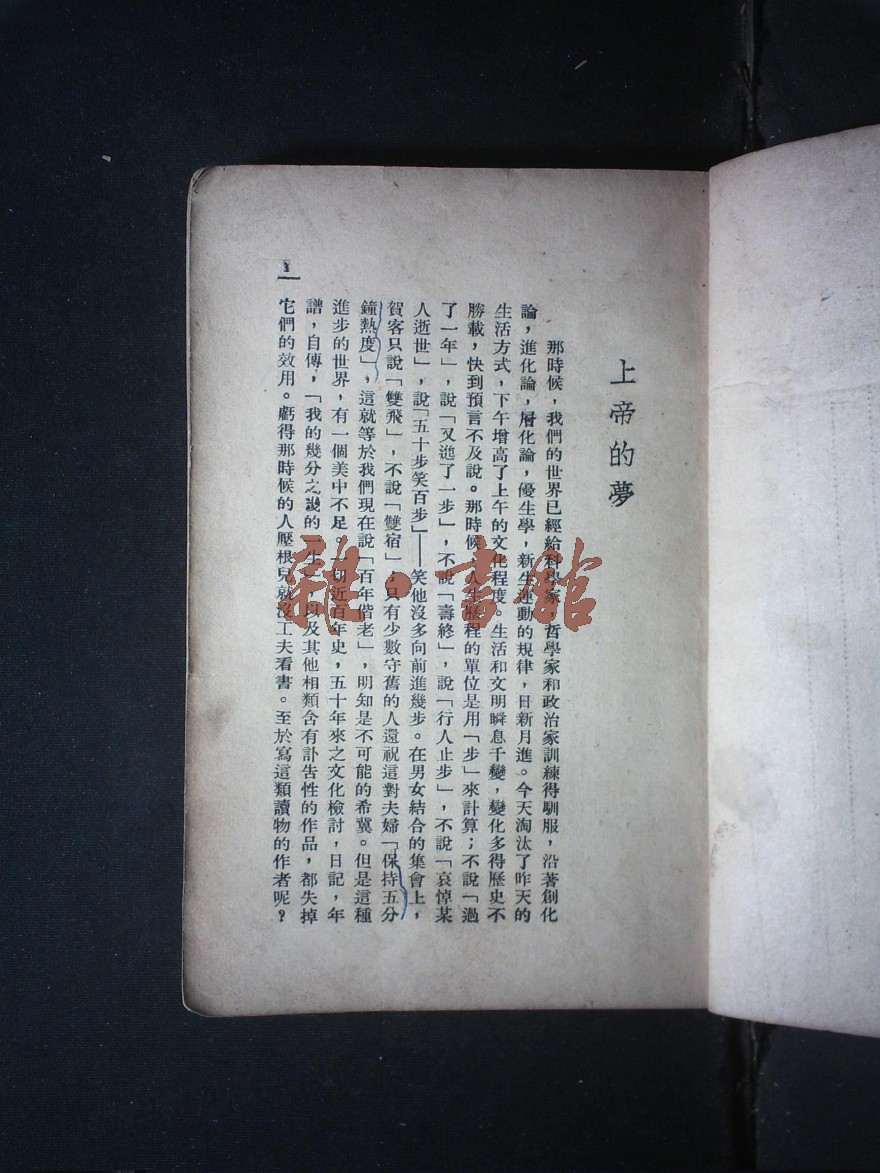 上帝的夢
那時候，我們的世界已經給科學家，哲學家和政治家訓練得馴服，沿著創化
論，進化論，層化論，優生學，新生運動的規律，日新月進。今天淘汰了昨天的
生活方式，下午增高了上午的文化程度。生活和文明瞬息千變，變化多得歷史不
勝載，快到預言不及說。那時候，人生歷程的單位是用「步」來計算；不說「過
了一年」，說「又進了一步」，不說「壽終」，說「行人止步」，不說「哀悼某
人逝世」，說「五十步笑百步」——笑他沒多向前進幾步。在男女結合的集會上，
賀客只說「雙飛」，不說「雙宿」；只有少數守舊的人還祝這對夫婦「保持五分
鐘熱度」，這就等於我們現在說「百年偕老」，明知是不可能的希冀。但是這種
進步的世界，有一個美中不足。一切近百年史，五十年來之文化檢討，日記，年
譜，自傳，「我的幾分之幾的一生」，以及其他相類含有訃告性的作品，都失掉
它們的效用。虧得那時候的人壓根兒就沒工夫看書。至於寫這類讀物的作者呢？
雜·書館